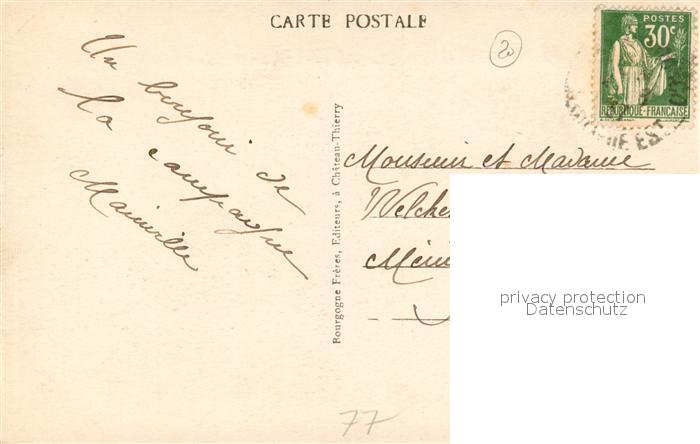 CARTE POSTALE
20
POSTES
30c
REPUBLIQUE-FRANÇAISE
EST
Un bonjour de
la campagne
Mainville
Bourgogne Frères, Editeurs, à Château-Thierry
Monsieur et Madame
privacy protection
Datenschutz
77